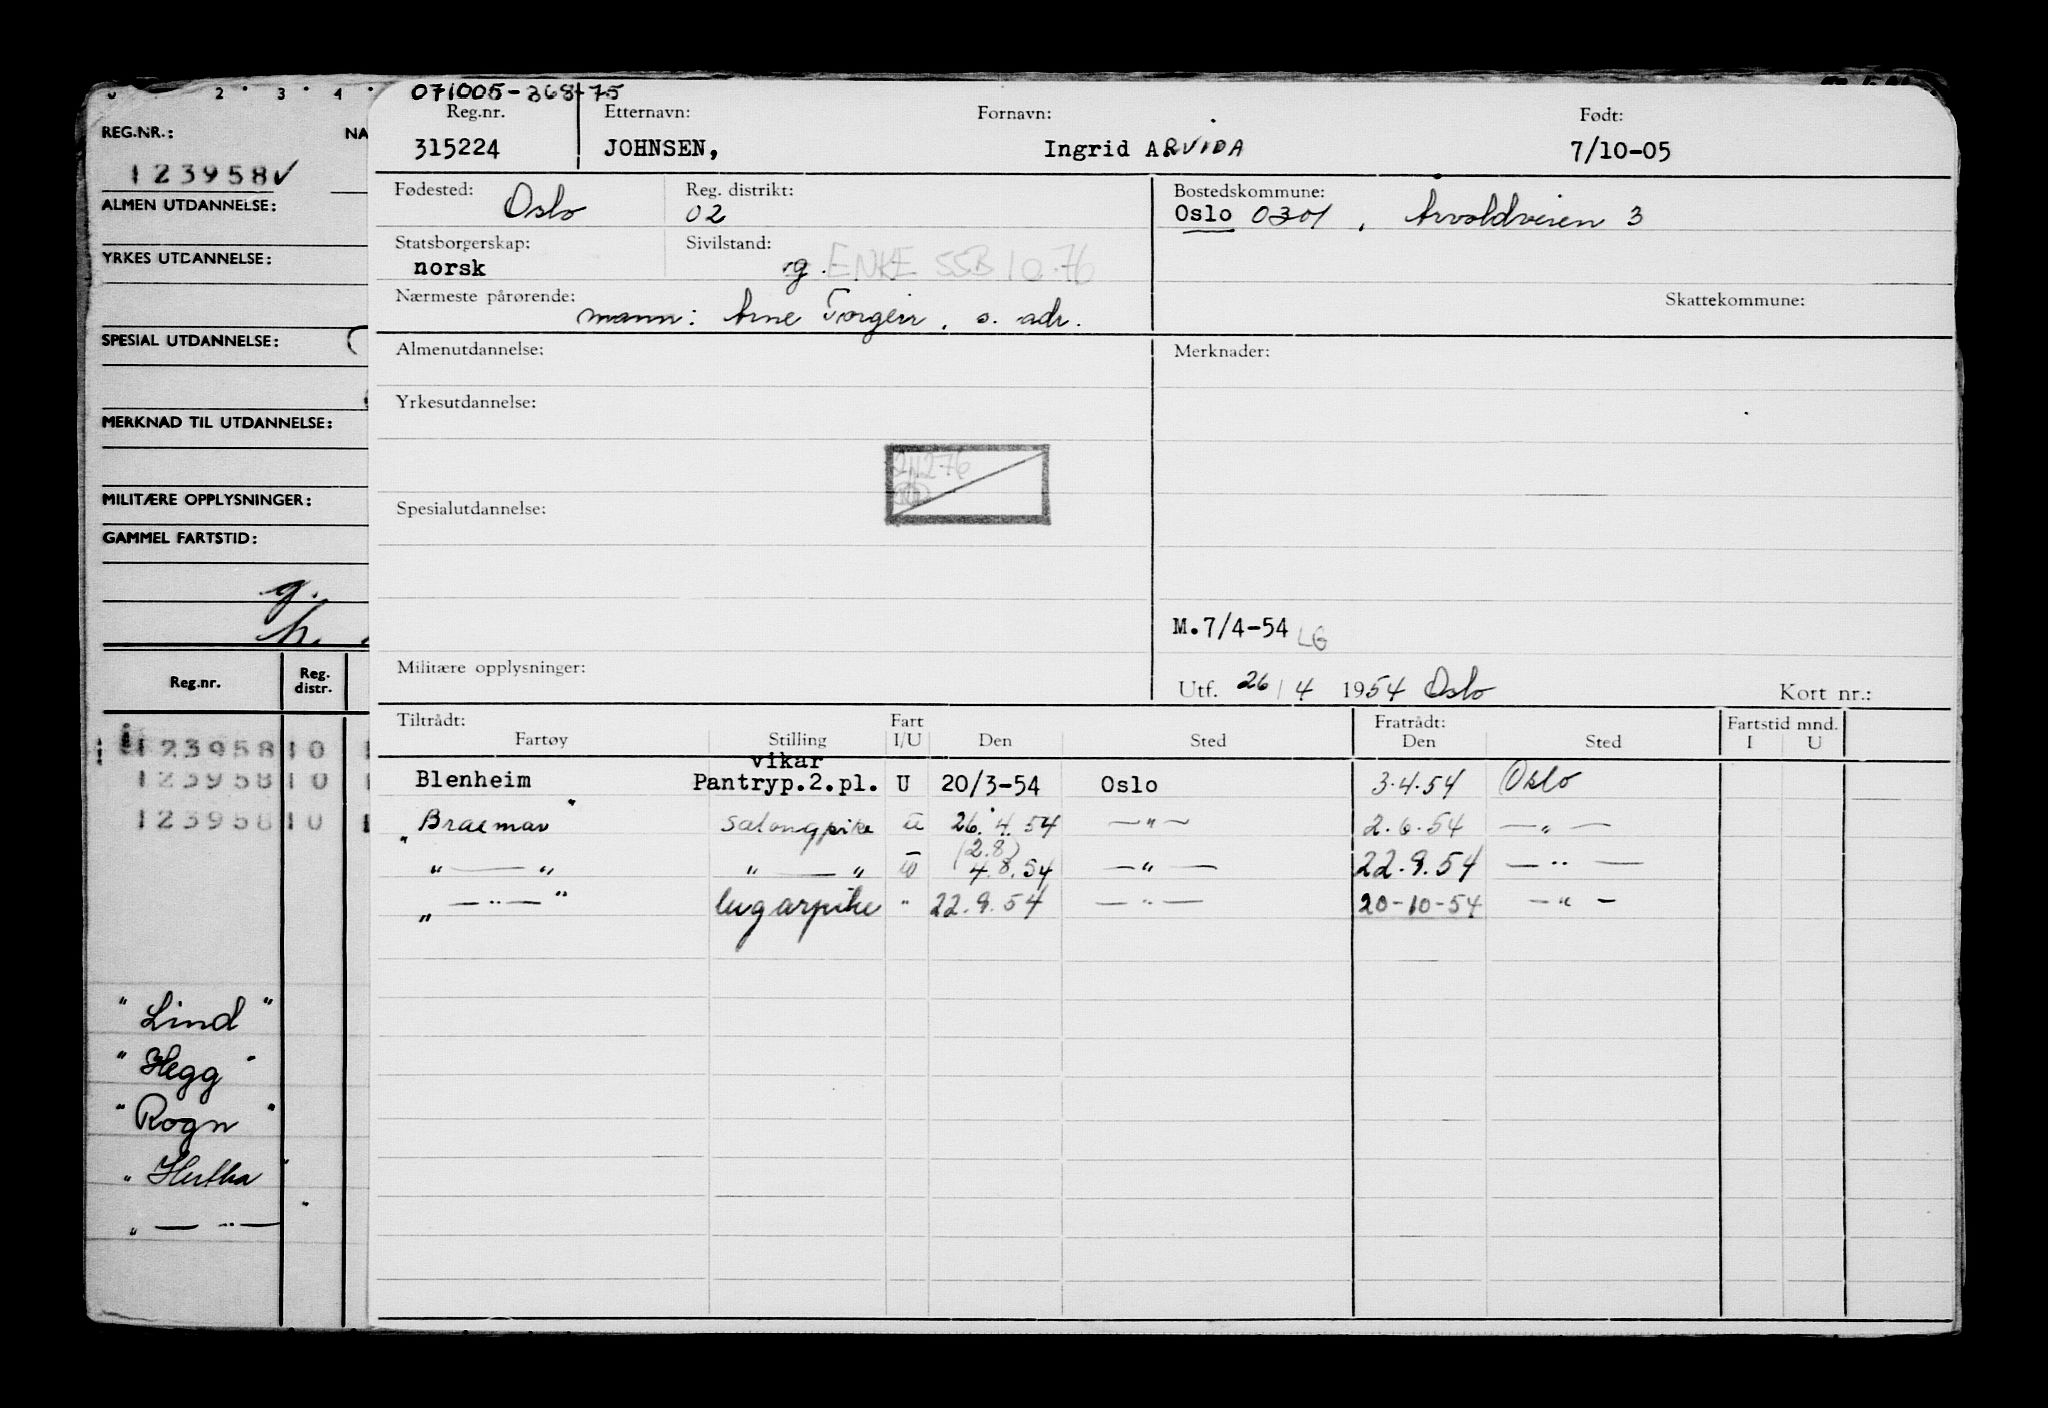 071005-36875
Reg.nr. Etternavn: Fornavn: Født:
315224 JOHNSEN, Ingrid ARVIDA 7/10-05
Fødested: Oslo Reg. distrikt: 02 Bostedskommune: Oslo 0301, Arvoldveien 3
Statsborgerskap: norsk Sivilstand: g. ENKE SSB 10.76
Nærmeste pårørende: mann: Arne Torgeir, s. adr. Skattekommune:
Almenutdannelse: Merknader:
Yrkesutdannelse:
Spesialutdannelse:
M.7/4-54 LG
Militære opplysninger: Utf. 26/4 1954 Oslo Kort nr.:
Tiltrådt: Fart Fratrådt: Fartstid mnd.
Fartøy Stilling I/U Den Sted Den Sted I U
vikar
Blenheim Pantryp.2.pl. U 20/3-54 Oslo 3.4.54 Oslo
"Braemar" salongpike U 26.4.54 —"— 2.6.54 —"—
(2.8)
"——" "——" U 4.8.54 —"— 22.9.54 —"—
"—"—" lugarpike " 22.9.54 —"— 20-10-54 —"—
2 3 4
REG.NR.: NA
123958✓
ALMEN UTDANNELSE:
YRKES UTDANNELSE:
SPESIAL UTDANNELSE:
MERKNAD TIL UTDANNELSE:
MILITÆRE OPPLYSNINGER:
GAMMEL FARTSTID:
g.
h.
Reg.nr. Reg. distr.
123958 10
123958 10
123958 10
"Lind"
"Hegg"
"Rogn"
"Hertha"
"—"—"